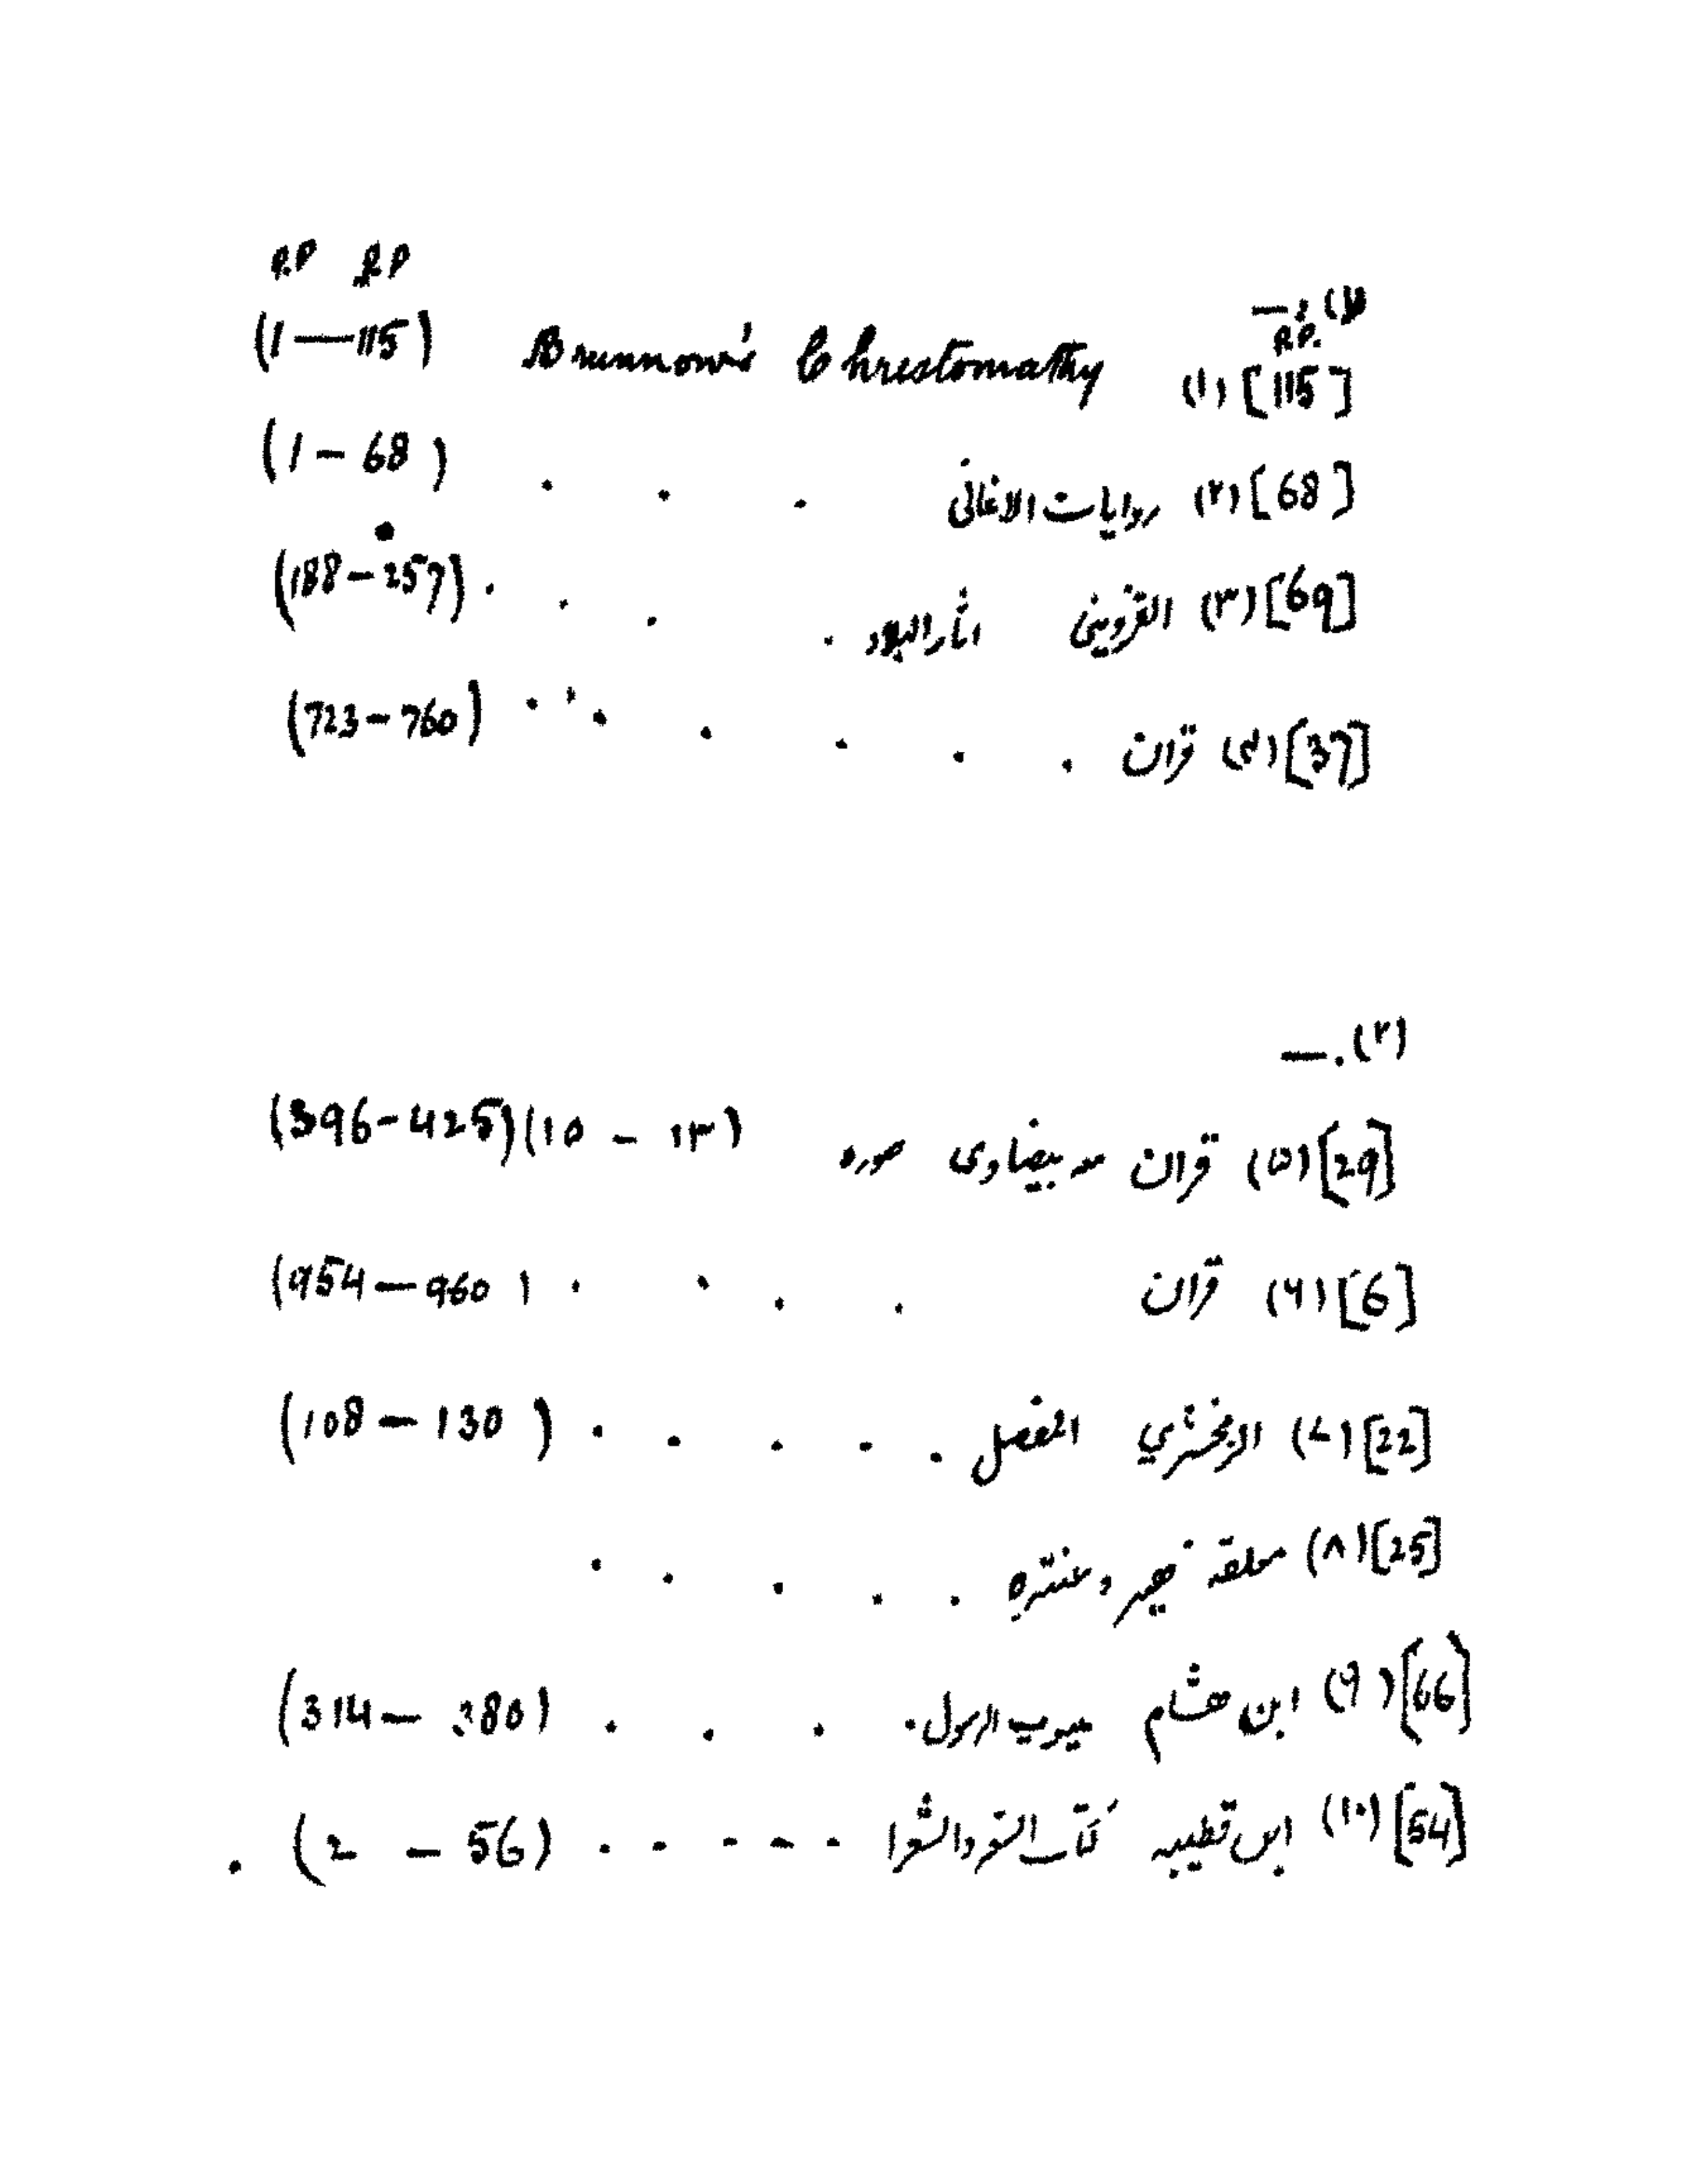 (١) . —
P.P. P.P
P.P.
[115] (١) Brunnow's Chrestomathy (1 — 115)
[68] (٢) روایات الاغانی . . . (1 – 68)
[69] (٣) القزوینی اثار البلاد . . . . (188 – 257)
[37] (٤) قران . . . . . . . (723 – 760)
(٢) . —
[29] (٥) قران مہ بیضاوی سورہ (10 – ١٣) (396 – 425)
[6] (٦) قران . . . . (954 — 960)
[22] (٧) الزمخشري المفصل . . . . . (108 – 130)
[25] (٨) معلقہ زھیر و عنترہ . . . . .
[66] (٩) ابن ھشام الرسول . . . . (314 – 380)
[54] (١٠) ابن قطیبہ کتاب الشعر والشعرا . - - - . . (2 – 56) .